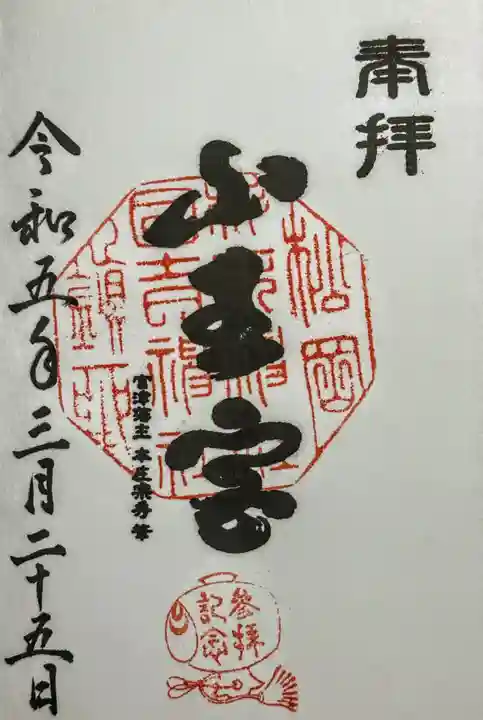 奉拝
山王宮
宮津藩主 本庄宗秀 筆
令和五年三月二十五日
松岡
参拝
記念